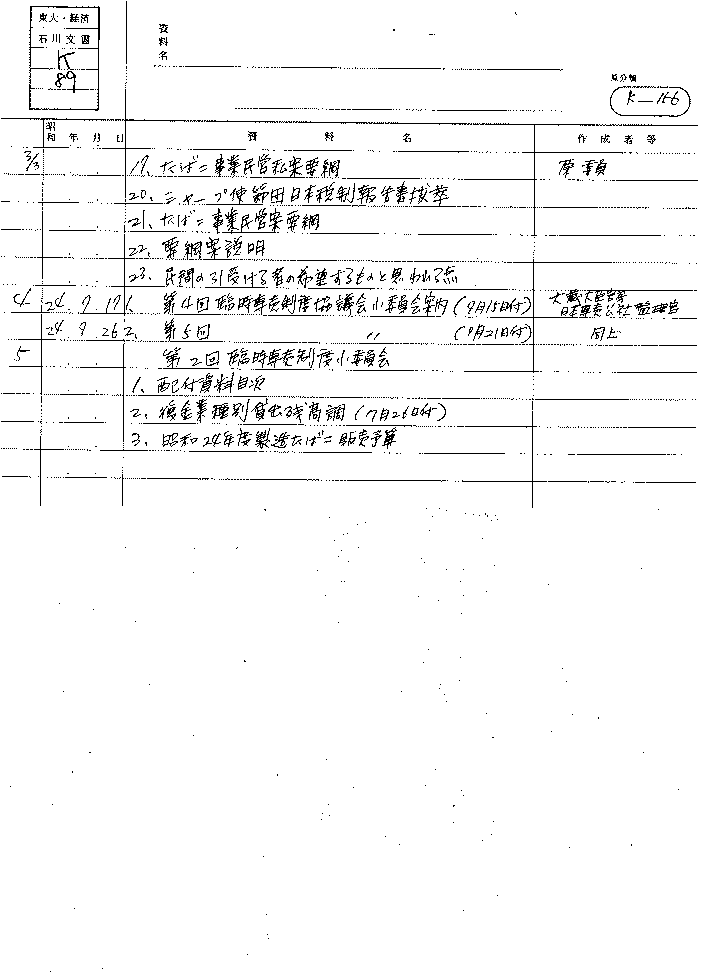 東大・経済
石川文書
K
89
資料名
原分類
K-166
昭和 年 月 日 資料名 作成者等
3/3 19、たばこ事業民営私案要綱 原 頴
20、シャープ使節団日本税制報告書抜萃
21、たばこ事業民営案要綱
22、要綱案説明
23、民間の引受ける者の希望するものと思われる点
4 24 9 17 1、 第4回臨時専売制度協議会小委員会案内(9月15日付) 大蔵大臣官房 日本専売公社監理官
24 9 26 2、 第5回 〃 (9月21日付) 同上
5 第2回臨時専売制度小委員会
1、配付資料目次
2、復金業種別貸出残高調(7月26日付)
3、昭和24年度製造たばこ販売予算